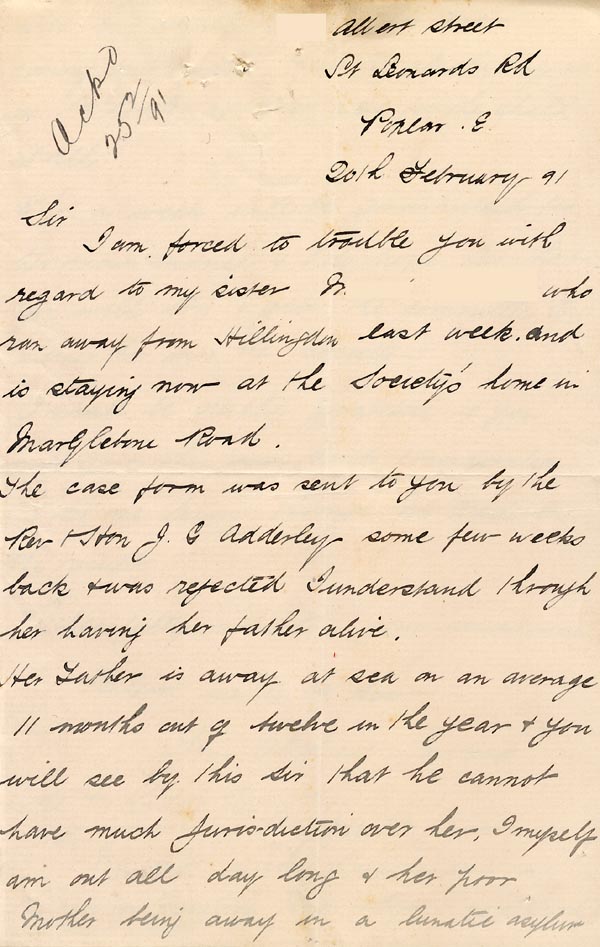 Albert street
St Leonards Rd
Poplar. E.
20th February 91
Ackd
25/2/91
Sir
I am forced to trouble you with
regard to my sister M. who
ran away from Hillingdon last week. and
is staying now at the Society's home in
Marylebone Road.
The case form was sent to you by the
Rev & Hon J. G Adderley some few weeks
back & was rejected I understand through
her having her father alive.
Her Father is away at sea on an average
11 months out of twelve in the year & you
will see by this sir that he cannot
have much jurisdiction over her. I myself
am out all day long & her poor
Mother being away in a lunatic asylum